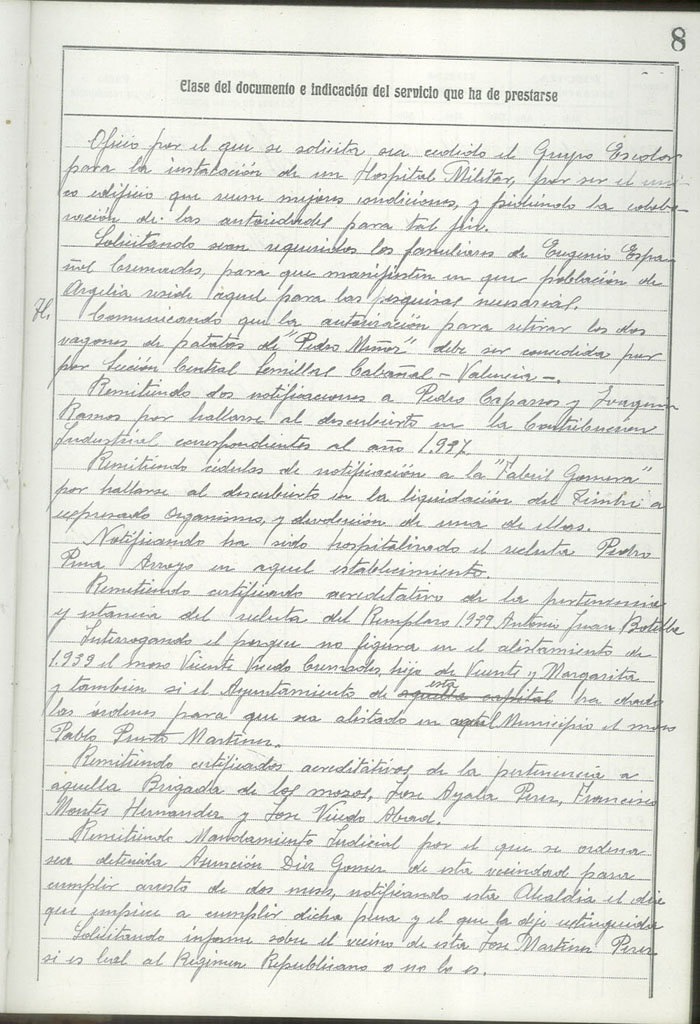 8
Clase del documento e indicación del servicio que ha de prestarse
Oficio por el que se solicita sea cedido el Grupo Escolar
para la instalación de un Hospital Militar, por ser el uni-
co edificio que reune mejores condiciones, y pidiendo la colabo-
ración de las autoridades para tal fin.
Solicitando sean requeridos los familiares de Eugenio Espa-
ñol Cremades, para que manifiesten en que población de
Argelia reside aquel para las pesquisas necesarias.
H. Comunicando que la autorización para retirar los dos
vagones de patatas de "Pedro Muñoz" debe ser concedida por
por Sección Central Semillas Cabañal - Valencia -.
Remitiendo dos notificaciones a Pedro Caparros y Joaquin
Ramos por hallarse al descubierto en la Contribución
Industrial correspondientes al año 1.937.
Remitiendo cédulas de notificación a la "Fabril Gomera"
por hallarse al descubierto en la liquidación del Timbre a
expresado Organismo, y devolución de una de ellas.
Notificando ha sido hospitalizado el recluta Pedro
Pina Arroyo en aquel establecimiento.
Remitiendo certificado acreditativo de la pertenencia
y estancia del recluta del Remplazo 1939 Antonio Juan Botella
Interrogando el porque no figura en el alistamiento de
1.939 el mozo Vicente Vicedo Cremades, hijo de Vicente y Margarita
y tambien si el Ayuntamiento de aquella capital esta ha dado
las ordenes para que sea alistado en aquel Municipio el mozo
Pablo Martinez.
Remitiendo certificados acreditativos de la pertenencia a
aquella Brigada de los mozos, Jose Ayala Perez, Francisco
Montes Hernandez y Jose Vicedo Abad.
Remitiendo Mandamiento Judicial por el que se ordena
sea detenida Asunción Diez Gomez de esta vecindad para
cumplir arresto de dos meses, notificando esta Alcaldia el dia
que empiece a cumplir dicha pena y el que la deje extinguida
Solicitando informe sobre el vecino de esta Jose Martinez Perez
si es leal al Regimen Republicano o no lo es.